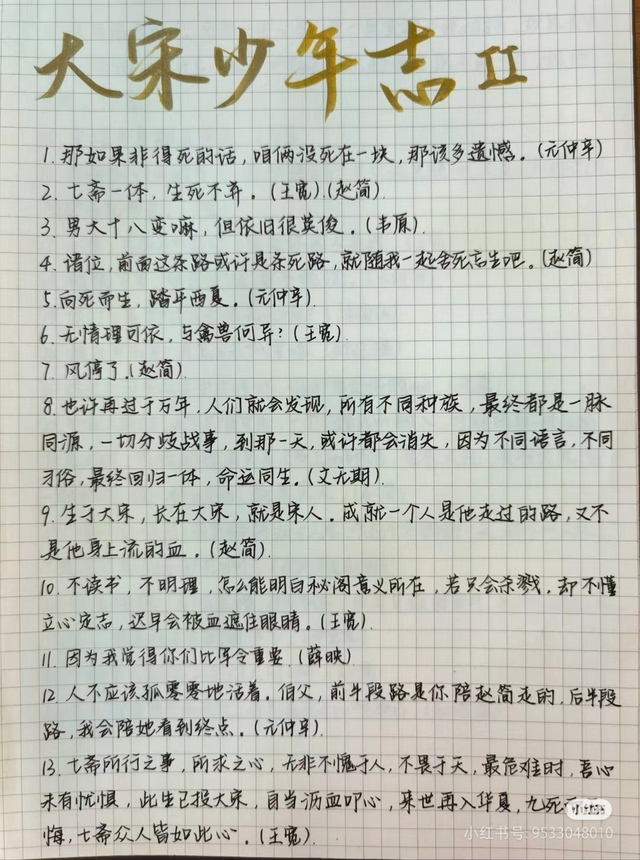 大宋少年志II
1. 那如果非得死的话，咱俩没死在一块，那该多遗憾。(元仲辛)
2. 七斋一体，生死不弃。(王宽).(赵简)
3. 男大十八变嘛，但依旧很英俊。(韦原)
4. 诸位，前面这条路或许是条死路，就随我一起舍死忘生吧。(赵简)
5. 向死而生，踏平西夏。(元仲辛)
6. 无情理可依，与禽兽何异？(王宽)
7. 风停了.(赵简)
8. 也许再过千万年，人们就会发现，所有不同种族，最终都是一脉
同源，一切分歧战事，到那一天，或许都会消失，因为不同语言，不同
习俗，最终回归一体，命运同生。(文无期)
9. 生于大宋，长在大宋，就是宋人。成就一个人是他走过的路，又不
是他身上流的血。(赵简)
10. 不读书，不明理，怎么能明白秘阁意义所在，若只会杀戮，却不懂
立心定志，迟早会被血遮住眼睛。(王宽)
11. 因为我觉得你们比军令重要.(薛映)
12. 人不应该孤零零地活着。伯父，前半段路是你陪赵简走的，后半段
路，我会陪她看到终点。(元仲辛)
13. 七斋所行之事，所求之心，无非不愧于人，不畏于天，最危难时，吾心
未有忧惧，此生已投大宋，自当沥血叩心，来世再入华夏，九死
悔，七斋众人皆如此心。(王宽)
小红书
小红书号: 9533048010